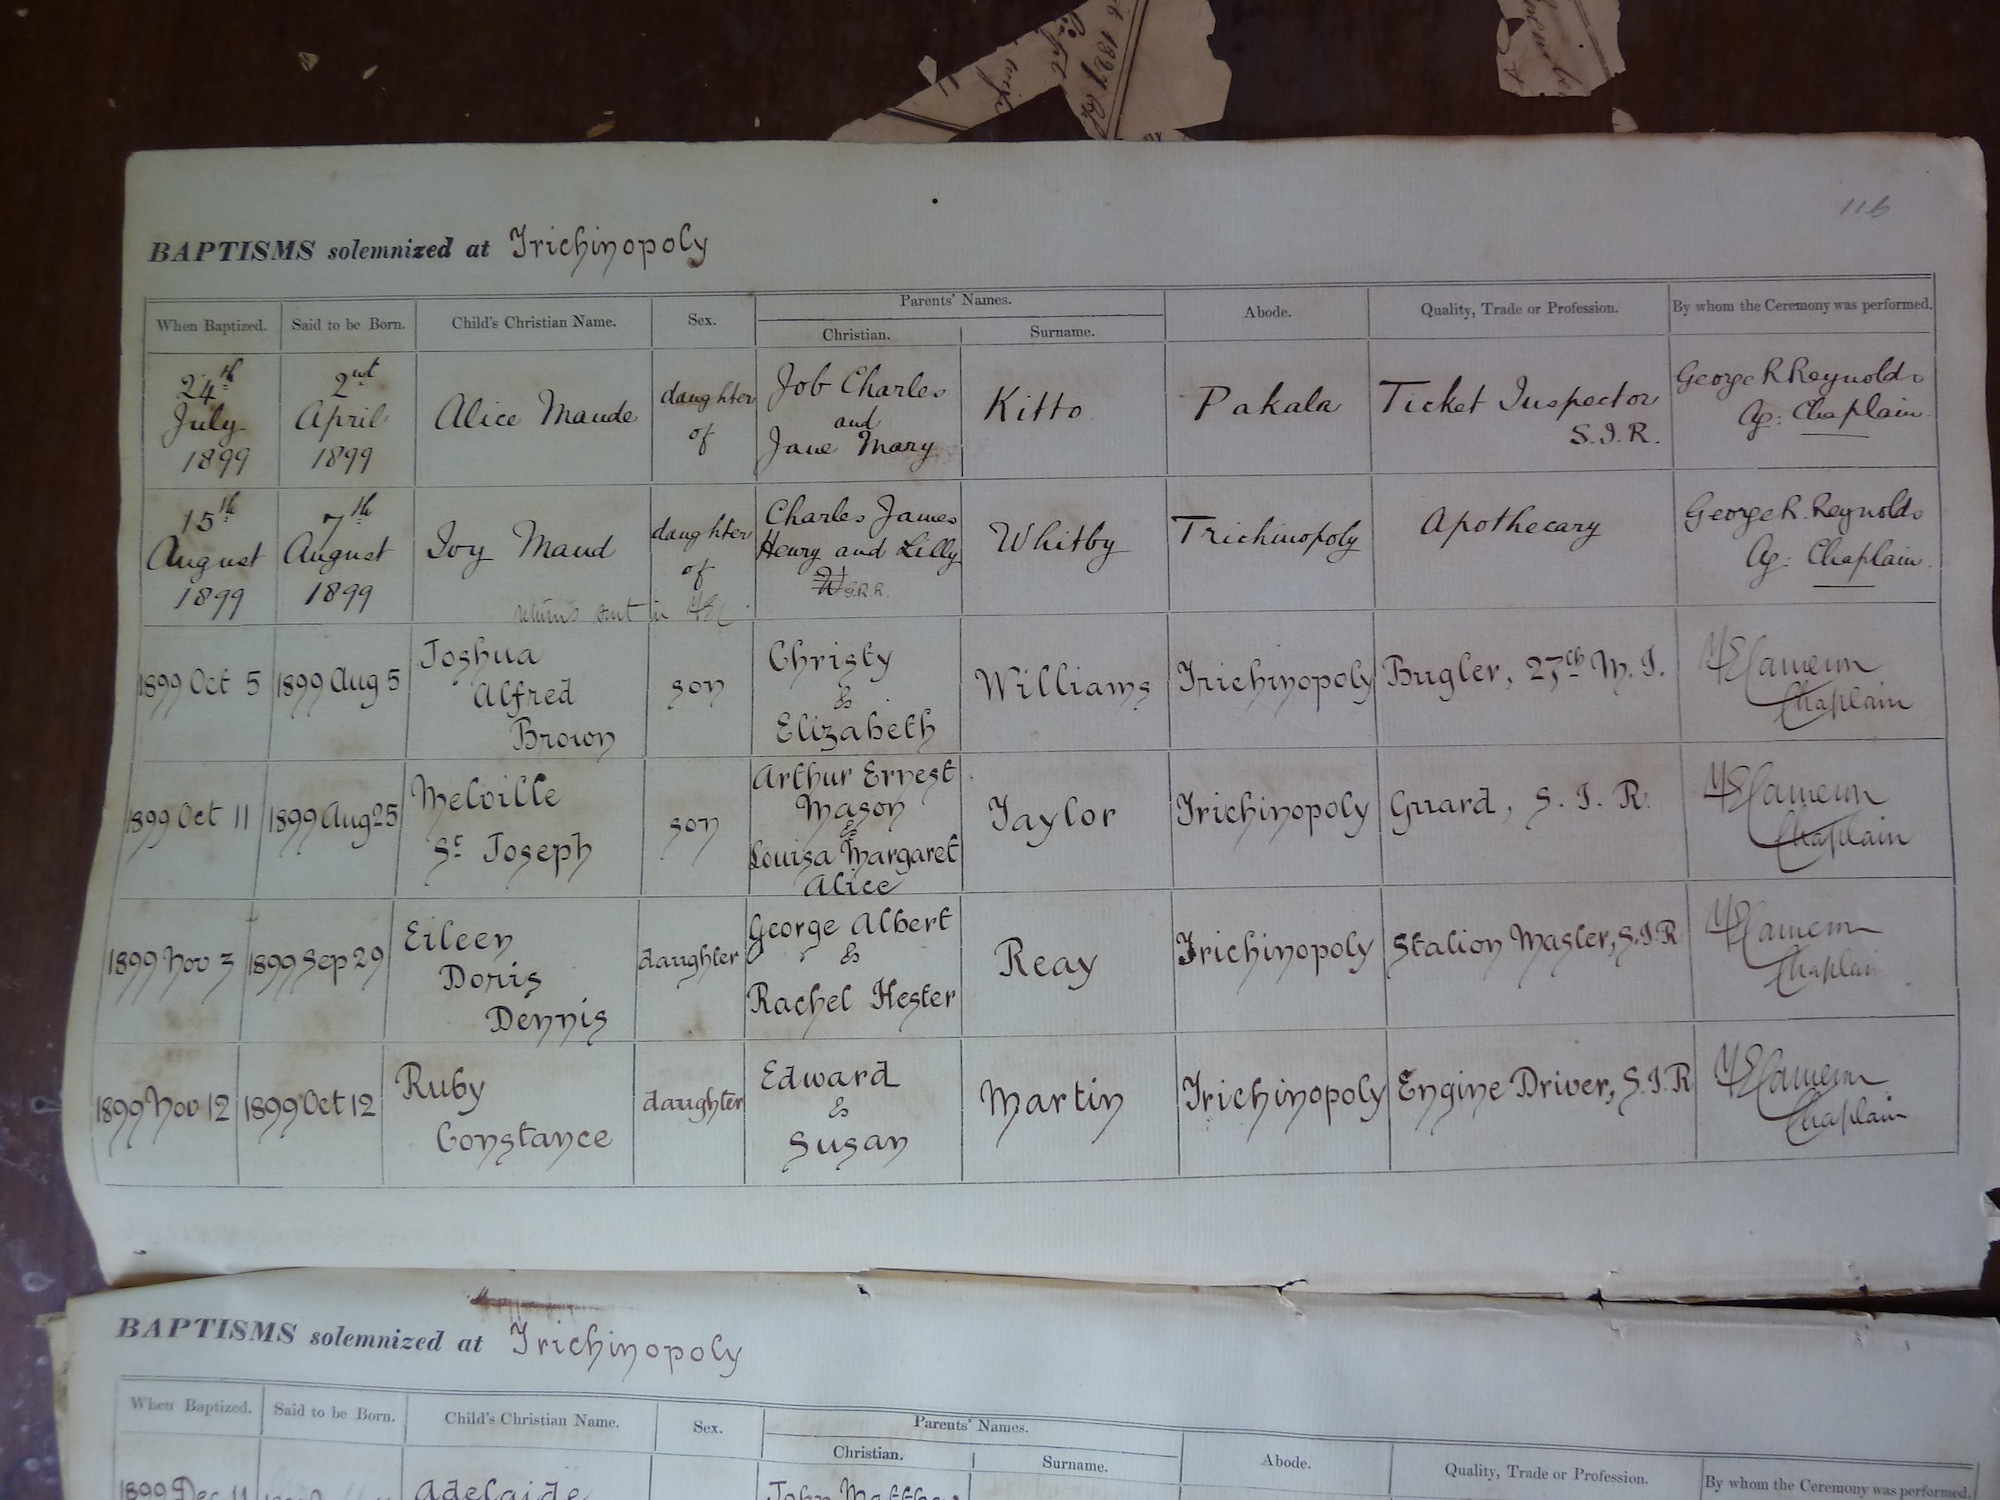 116
BAPTISMS solemnized at Trichinopoly
When Baptized. Said to be Born. Child's Christian Name. Sex. Parents' Names. Christian. Surname. Abode. Quality, Trade or Profession. By whom the Ceremony was performed.
24th July 1899
2nd April 1899
Alice Maude
daughter of
Job Charles
and
Jane Mary
Kitto
Pakala
Ticket Inspector
S.I.R.
George R Reynolds
Ag: Chaplain
15th August 1899
7th August 1899
Ivy Maud
daughter of
Charles James
Henry and Lilly
G.R.R.
Whitby
Trichinopoly
Apothecary
George R. Reynolds
Ag: Chaplain.
returns sent in
1899 Oct 5
1899 Aug 5
Joshua
Alfred
Brown
son
Christy
&
Elizabeth
Williams
Trichinopoly
Bugler, 27th M. I.
Chaplain
1899 Oct 11
1899 Aug 25
Melville
St Joseph
son
Arthur Ernest
Mason
&
Louisa Margaret
Alice
Taylor
Trichinopoly
Guard, S. I. R.
Chaplain
1899 Nov 3
1899 Sep 29
Eileen
Doris
Dennis
daughter
George Albert
&
Rachel Hester
Reay
Trichinopoly
Station Master, S.I.R
Chaplain
1899 Nov 12
1899 Oct 12
Ruby
Constance
daughter
Edward
&
Susan
Martin
Trichinopoly
Engine Driver, S.I.R
Chaplain
BAPTISMS solemnized at Trichinopoly
When Baptized. Said to be Born. Child's Christian Name. Sex. Parents' Names. Christian. Surname. Abode. Quality, Trade or Profession. By whom the Ceremony was performed.
1899 Dec 11
Adelaide
John